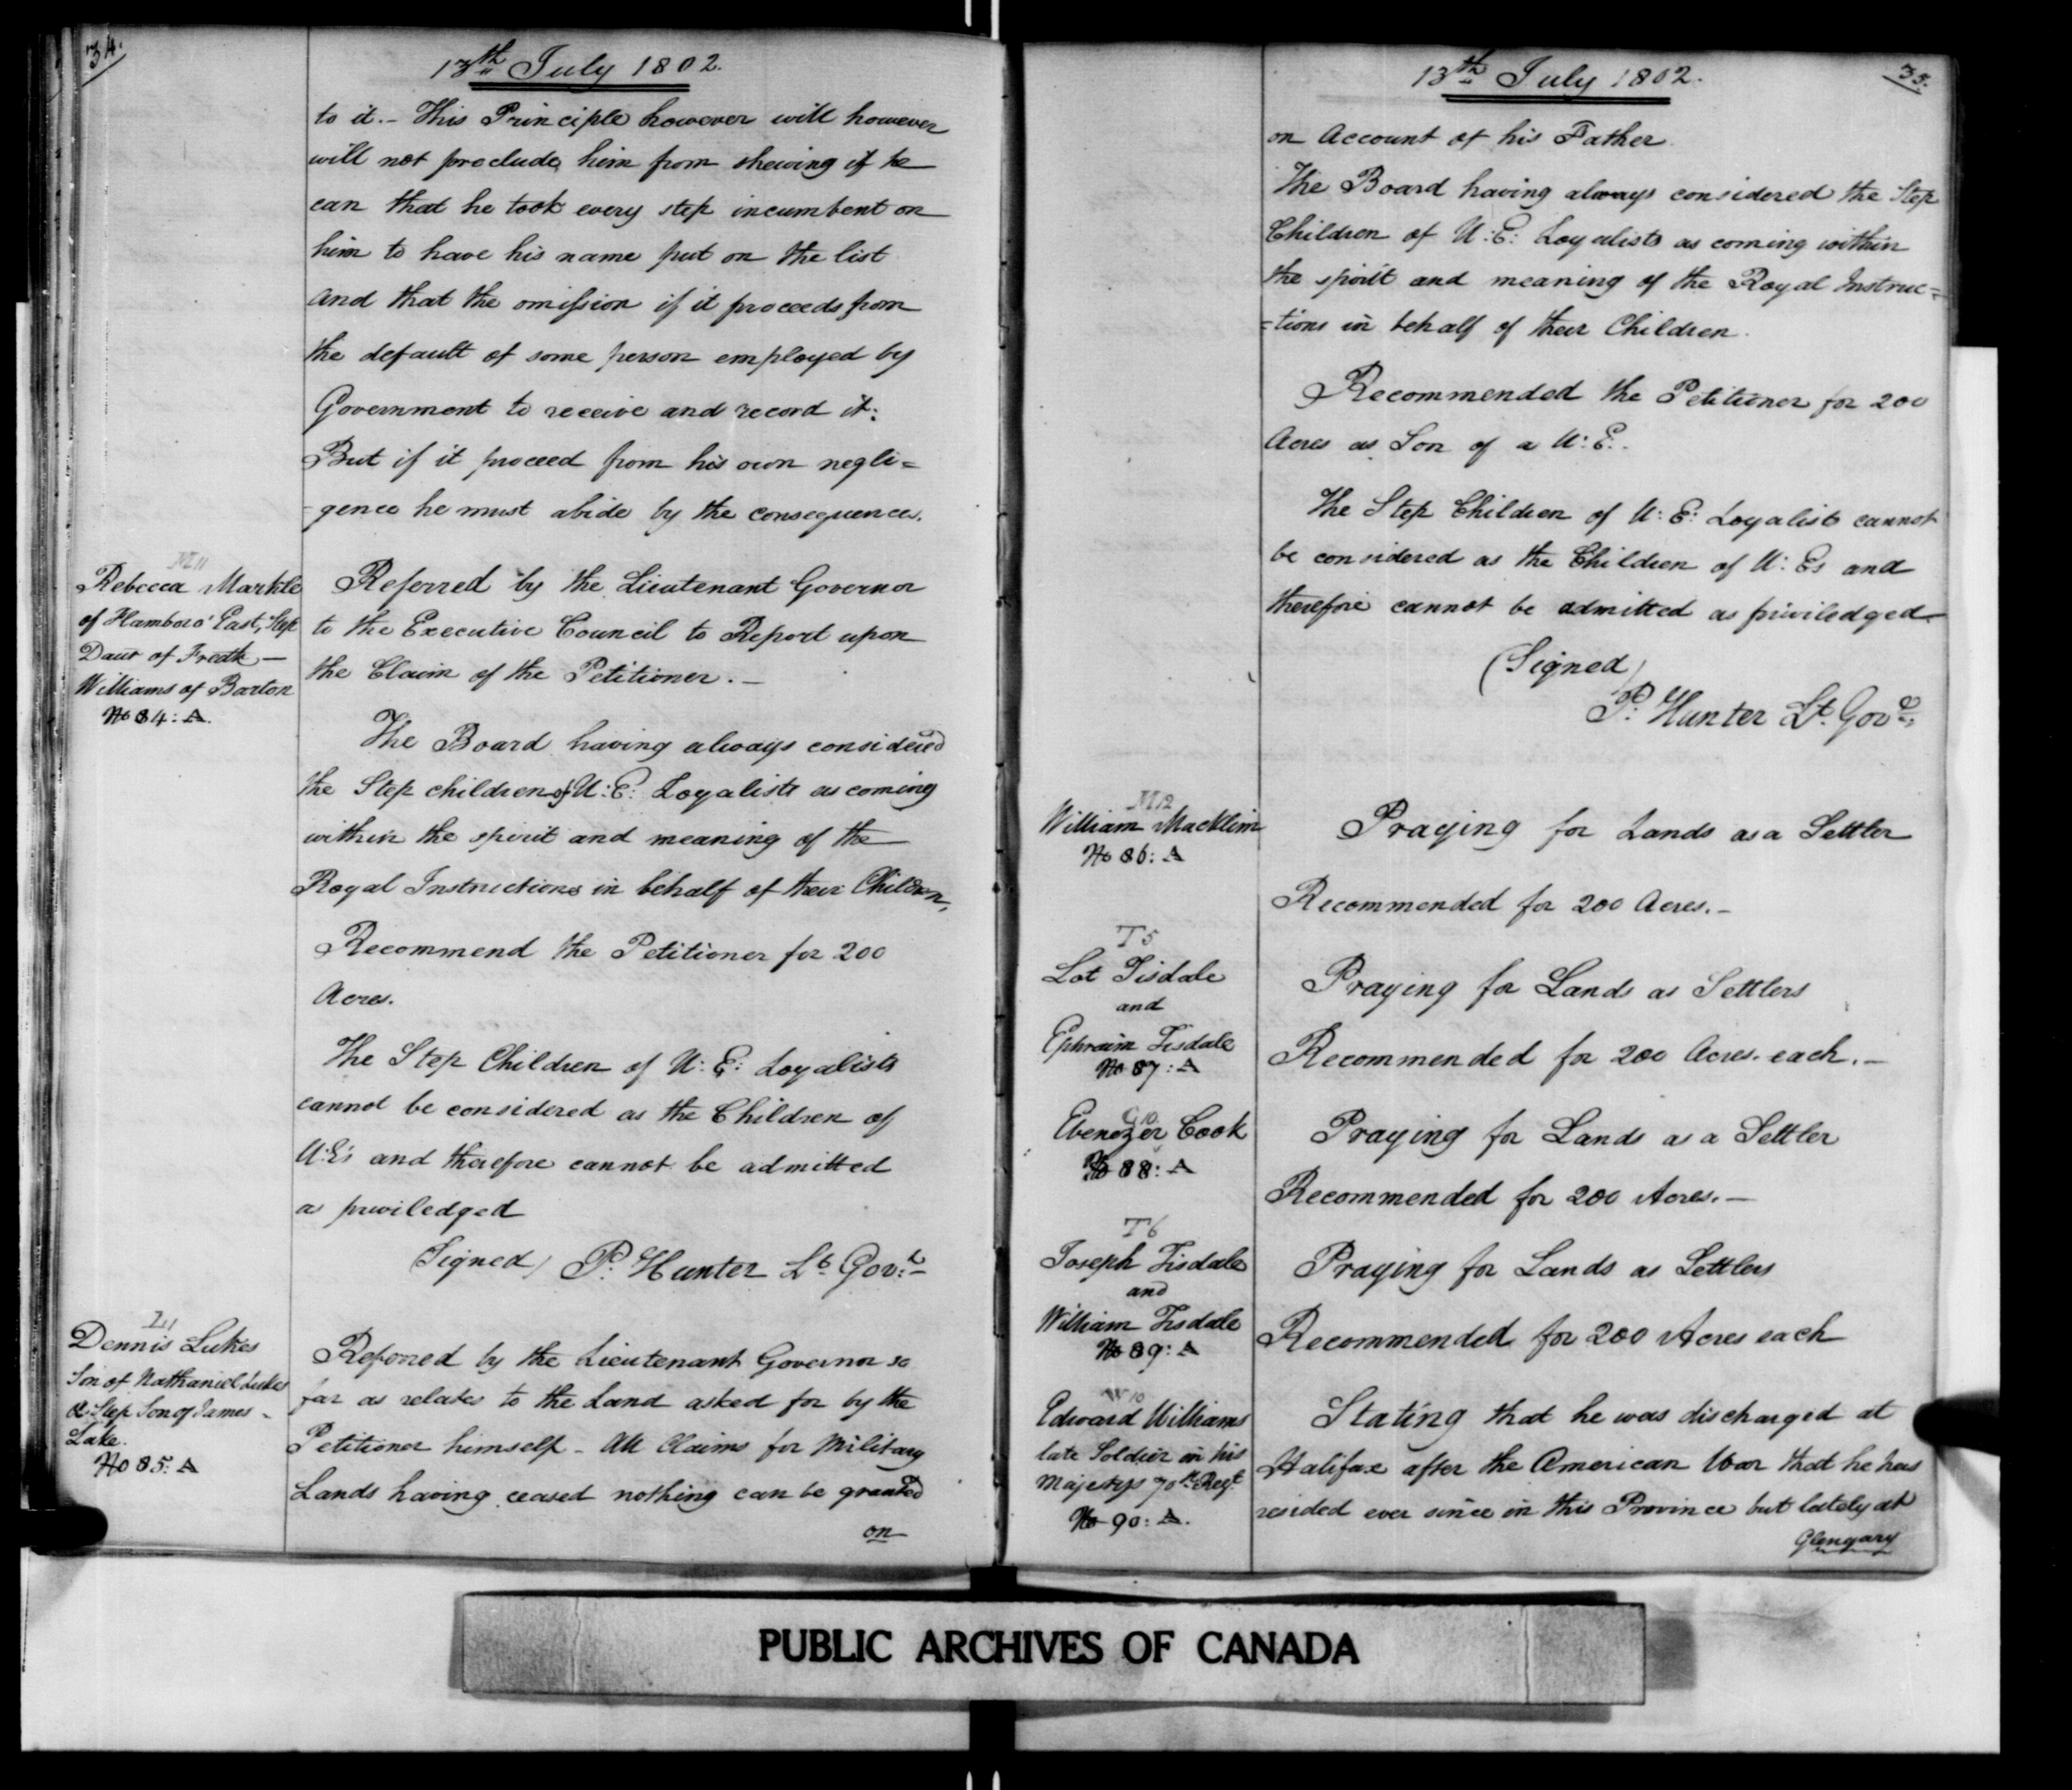 34.
13th July 1802.
to it. – This Principle however will however
will not preclude him from shewing if he
can that he took every step incumbent on
him to have his name put on the list
and that the omission if it proceeds from
the default of some person employed by
Government to receive and record it:
But if it proceed from his own negli=
=gence he must abide by the consequences.
M11
Rebecca Markle
of Flamboro' East, Step
Daur of Fredk —
Williams of Barton
No 84: A.
Referred by the Lieutenant Governor
to the Executive Council to Report upon
the Claim of the Petitioner. –
The Board having always considered
the Step children of U: E: Loyalists as coming
within the spirit and meaning of the
Royal Instructions in behalf of their Children,
Recommend the Petitioner for 200
Acres.
The Step Children of U: E: Loyalists
cannot be considered as the Children of
U:E's and therefore cannot be admitted
as priviledged
(Signed) P: Hunter Lt. Govr.
L11
Dennis Lukes
Son of Nathaniel Lukes
& Step Son of James –
Lake.
No 85: A
Referred by the Lieutenant Governor so
far as relates to the Land asked for by the
Petitioner himself – All Claims for Military
Lands having ceased nothing can be granted
on
35.
13th July 1802.
on Account of his Father.
The Board having always considered the Step
Children of U: E: Loyalists as coming within
the spirit and meaning of the Royal Instruc=
=tions in behalf of their Children.
Recommended the Petitioner for 200
Acres as Son of a U: E:.
The Step Children of U: E: Loyalists cannot
be considered as the Children of U: Es and
therefore cannot be admitted as priviledged –
(Signed)
P: Hunter Lt. Govr.
M12
William Macklim
No 86: A
Praying for Lands as a Settler
Recommended for 200 Acres. –
T5
Lot Tisdale
and
Ephraim Tisdale
No 87: A
Praying for Lands as Settlers
Recommended for 200 Acres each. –
C10
Ebenezer Cook
No 88: A
Praying for Lands as a Settler
Recommended for 200 Acres. –
T6
Joseph Tisdale
and
William Tisdale
No 89: A
Praying for Lands as Settlers
Recommended for 200 Acres each
W10
Edward Williams
late Soldier in his
Majestys 70th Regt.
No 90: A.
Stating that he was discharged at
Halifax after the American War that he has
resided ever since in this Province but lately at
Glengary
PUBLIC ARCHIVES OF CANADA